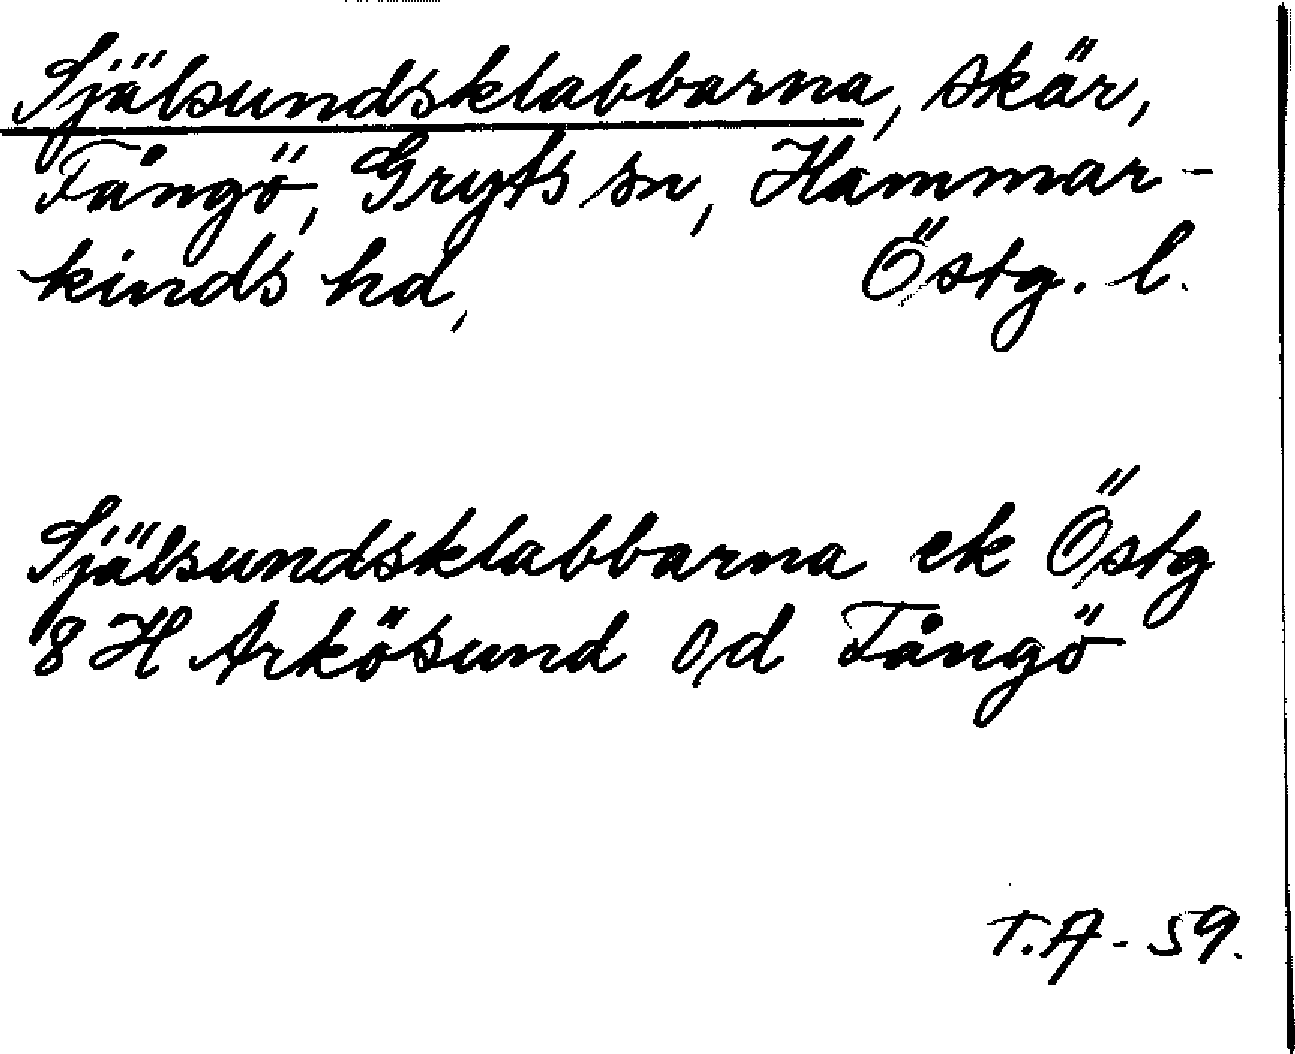 Själsundsklabbarna, skär,
Fångö, Gryts sn, Hammar-
kinds hd, Östg. l.
Själsundsklabbarna ek Östg
8 H Arkösund o,d Fångö
T.A - 59.